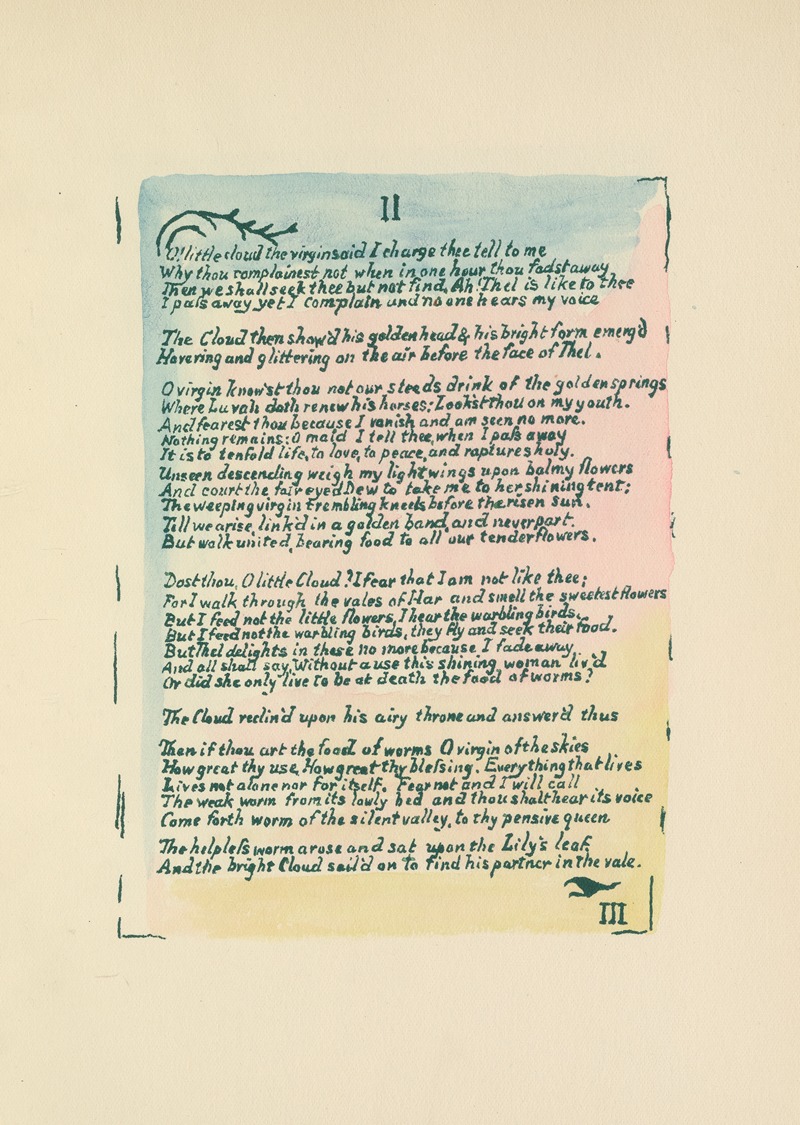 II
O! little cloud the virgin said I charge thee tell to me
Why thou complainest not when in one hour thou fadst away
Then we shall seek thee but not find, Ah! Thel is like to thee
I pass away yet I complain and no one hears my voice
The Cloud then show'd his golden head & his bright form emerg'd
Hovering and glittering on the air before the face of Thel.
O virgin know'st thou not our steeds drink of the golden springs
Where Luvah doth renew his horses: Lookst thou on my youth.
And fearest thou because I vanish and am seen no more.
Nothing remains: O maid I tell thee, when I pass away
It is to tenfold life, to love, to peace, and raptures holy.
Unseen descending weigh my light wings upon balmy flowers
And court the fair eyed Dew to take me to her shining tent;
The weeping virgin trembling kneels before the risen sun.
Till we arise, link'd in a golden band, and never part.
But walk united, bearing food to all our tender flowers.
Dost thou, O little Cloud? I fear that I am not like thee;
For I walk through the vales of Har and smell the sweetest flowers
But I feed not the little flowers, I hear the warbling birds.
But I feed not the warbling birds, they fly and seek their food.
But Thel delights in these no more because I fade away
And all shall say, Without a use this shining woman liv'd
Or did she only live to be at death the food of worms?
The Cloud reclin'd upon his airy throne and answer'd thus
Then if thou art the food of worms O virgin of the skies
How great thy use, How great thy blessing. Every thing that lives
Lives not alone nor for itself. Fear not and I will call
The weak worm from its lowly bed and thou shalt hear its voice
Come forth worm of the silent valley, to thy pensive queen
The helpless worm arose and sat upon the Lily's leaf
And the bright Cloud sail'd on to find his partner in the vale.
III